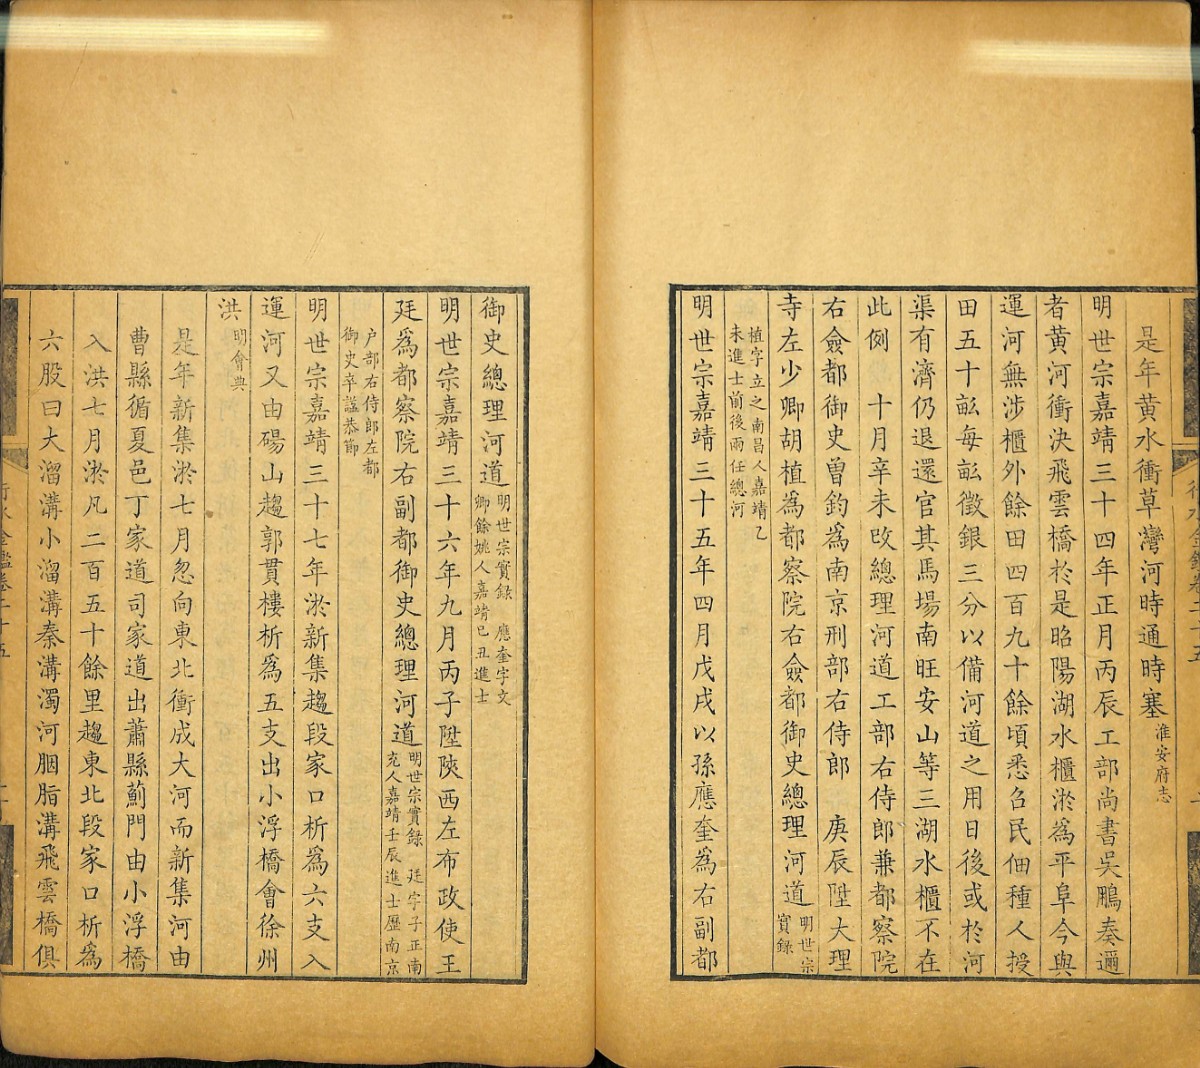 是年黄水衝草灣河時通時塞淮安府志
明世宗嘉靖三十四年正月丙辰工部尚書吳鵬奏邇
者黄河衝決飛雲橋於是昭陽湖水櫃淤為平阜今與
運河無涉櫃外餘田四百九十餘頃悉召民佃種人授
田五十畝每畝徵銀三分以備河道之用日後或於河
渠有濟仍退還官其馬場南旺安山等三湖水櫃不在
此例　十月辛未改總理河道工部右侍郎兼都察院
右僉都御史曾鈞為南京刑部右侍郎　庚辰陞大理
寺左少卿胡植為都察院右僉都御史總理河道明世宗實錄
植字立之南昌人嘉靖乙未進士前後兩任總河
明世宗嘉靖三十五年四月戊戌以孫應奎為右副都
御史總理河道明世宗實錄　應奎字文卿餘姚人嘉靖己丑進士
明世宗嘉靖三十六年九月丙子陞陝西左布政使王
廷為都察院右副都御史總理河道明世宗實錄　廷字子正南充人嘉靖壬辰進士歷南京
户部右侍郎左都御史卒謚恭節
明世宗嘉靖三十七年淤新集趨段家口析為六支入
運河又由碭山趨郭貫樓析為五支出小浮橋會徐州
洪明會典
是年新集淤七月忽向東北衝成大河而新集河由
曹縣循夏邑丁家道司家道出蕭縣薊門由小浮橋
入洪七月淤凡二百五十餘里趨東北段家口析為
六股曰大溜溝小溜溝秦溝濁河胭脂溝飛雲橋俱